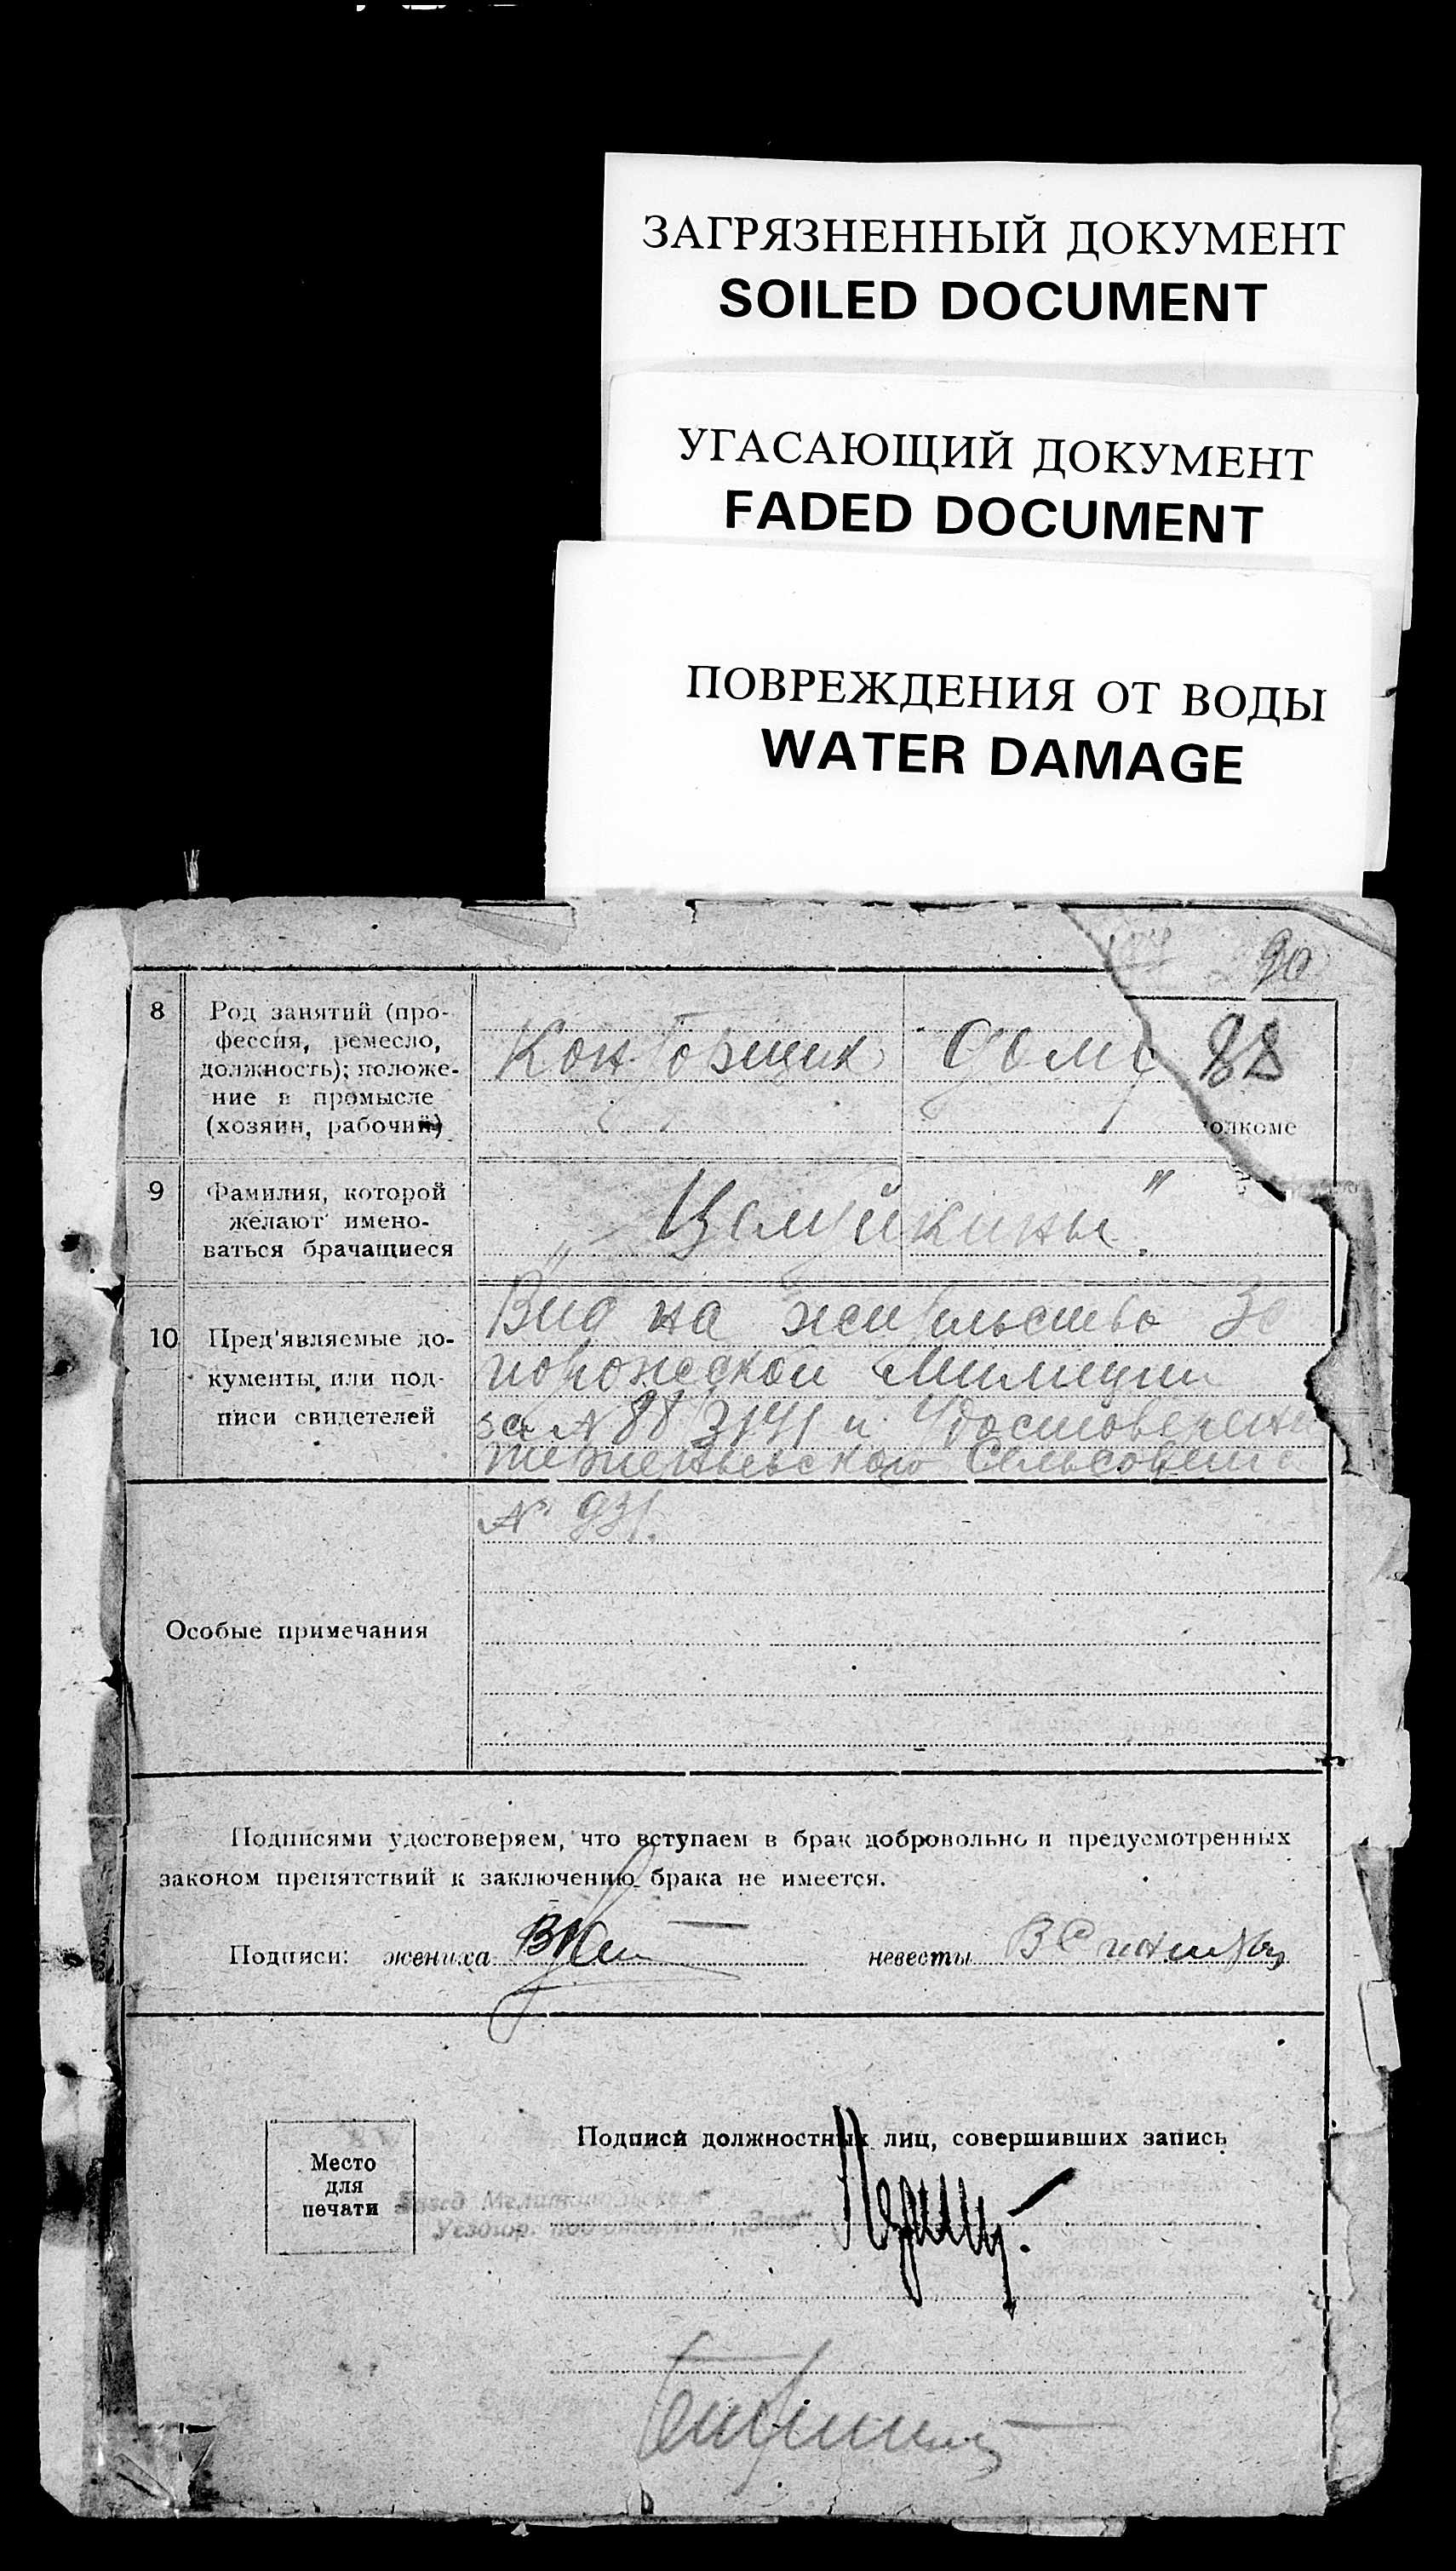 ЗАГРЯЗНЕННЫЙ ДОКУМЕНТ
SOILED DOCUMENT
УГАСАЮЩИЙ ДОКУМЕНТ
FADED DOCUMENT
ПОВРЕЖДЕНИЯ ОТ ВОДЫ
WATER DAMAGE
90
8
Род занятий (про-
фессия, ремесло,
должность); положе-
ние в промысле
(хозяин, рабочий)
Конторщик
88
олкоме
9
Фамилия, которой
желают имено-
ваться брачащиеся
10
Пред'являемые до-
кументы, или под-
писи свидетелей
Вид на жительство За
порожской Милиции
за № 88 3141 и Удостоверени
Сельсовета
№ 931.
Особые примечания
Подписями удостоверяем, что вступаем в брак добровольно и предусмотренных
законом препятствий к заключению брака не имеется.
Подписи: жениха
невесты
Подписи должностных лиц, совершивших запись
Место
для
печати